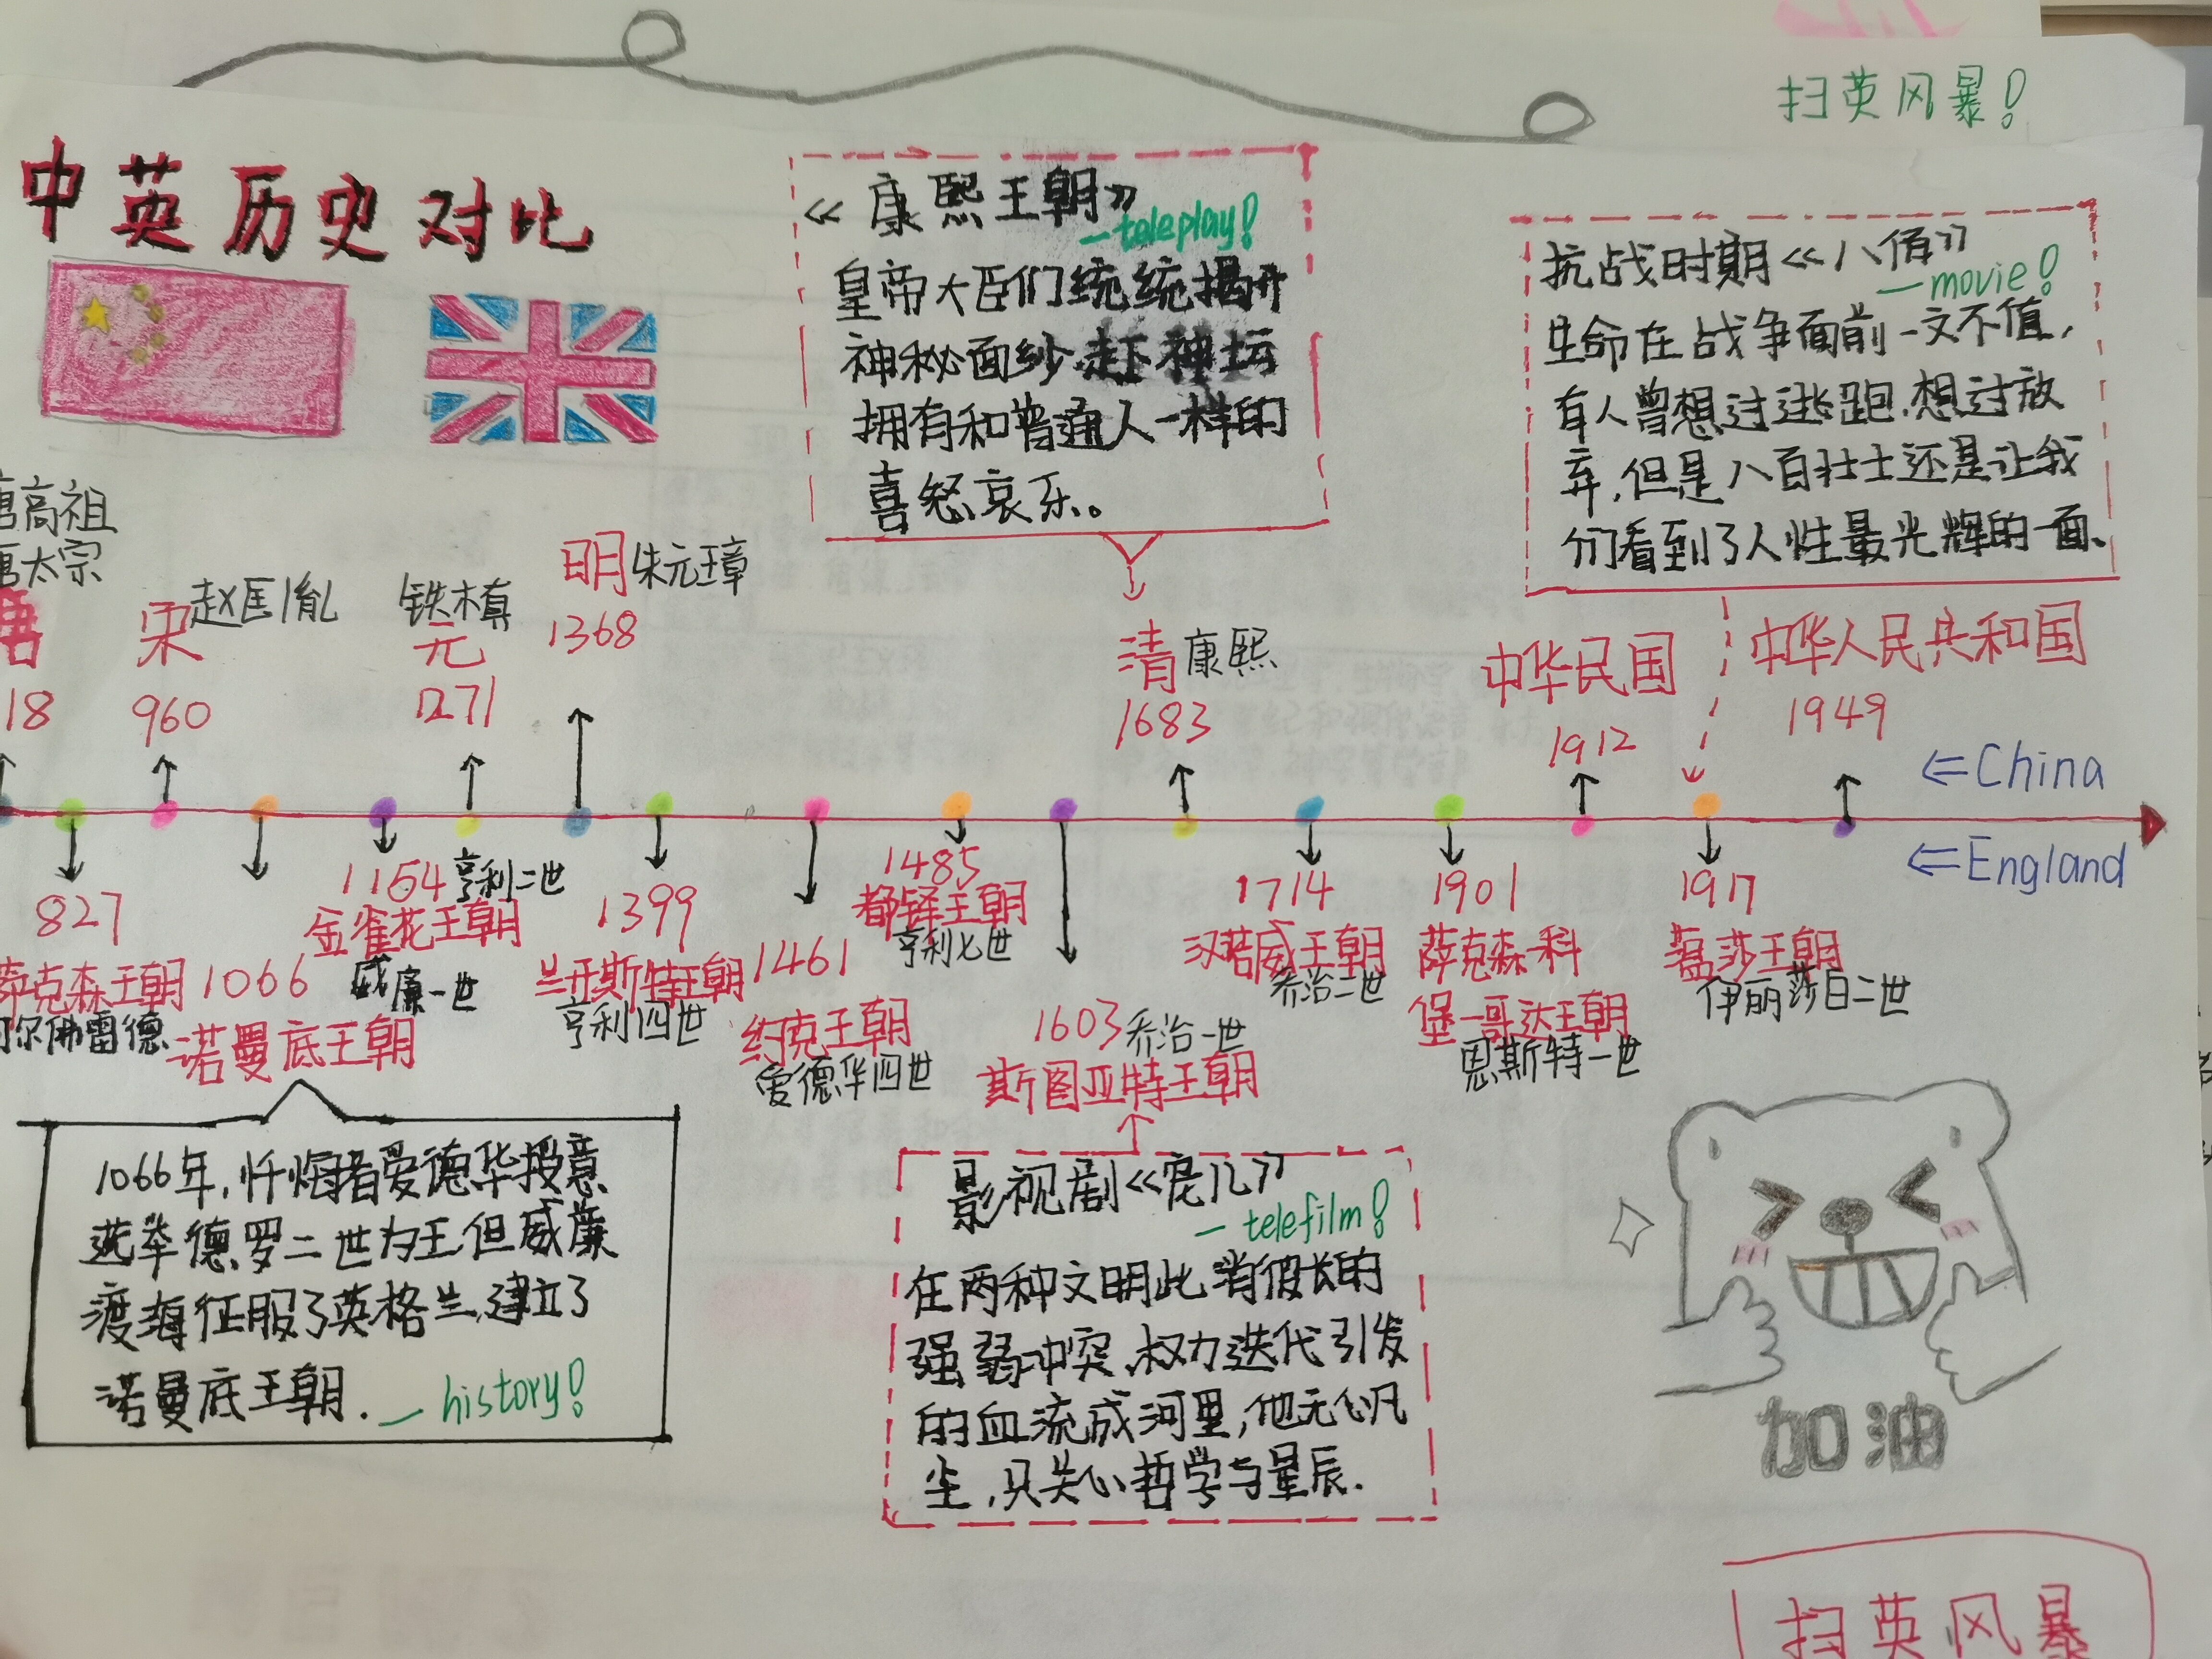 扫英风暴!
中英历史对比
《康熙王朝》
—teleplay!
皇帝大臣们统统揭开
神秘面纱.赴神坛
拥有和普通人一样的
喜怒哀乐。
抗战时期《八佰》
—movie!
生命在战争面前一文不值,
有人曾想过逃跑.想过放
弃,但是八百壮士还是让我
们看到了人性最光辉的一面、
唐高祖
唐太宗
唐
18
宋 赵匡胤
960
铁木真
元
1271
明 朱元璋
1368
清 康熙
1683
中华民国
1912
中华人民共和国
1949
⇐China
⇐England
827
萨克森王朝
阿尔弗雷德
1066
诺曼底王朝
1154 亨利二世
金雀花王朝
威廉一世
1399
兰开斯特王朝
亨利四世
1461
约克王朝
爱德华四世
1485
都铎王朝
亨利七世
1603 乔治一世
斯图亚特王朝
1714
汉诺威王朝
乔治二世
1901
萨克森-科
堡-哥达王朝
恩斯特一世
1917
温莎王朝
伊丽莎白二世
1066年,忏悔者爱德华授意
选举德罗二世为王.但威廉
渡海征服了英格兰,建立了
诺曼底王朝.
—history!
影视剧《宠儿》
—telefilm!
在两种文明此消彼长的
强弱冲突,权力迭代引发
的血流成河里,他无心凡
尘,只关心哲学与星辰.
加油
扫英风暴